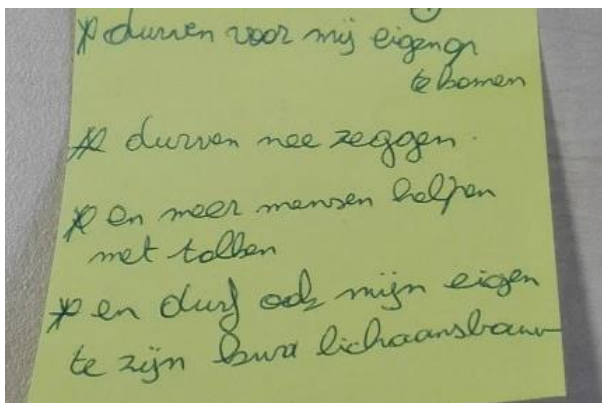 * durven voor mij eigengr
te komen
* durven nee zeggen.
* en meer mensen helpen
met tolken
* en durf ook mijn eigen
te zijn kwa lichaamsbouw